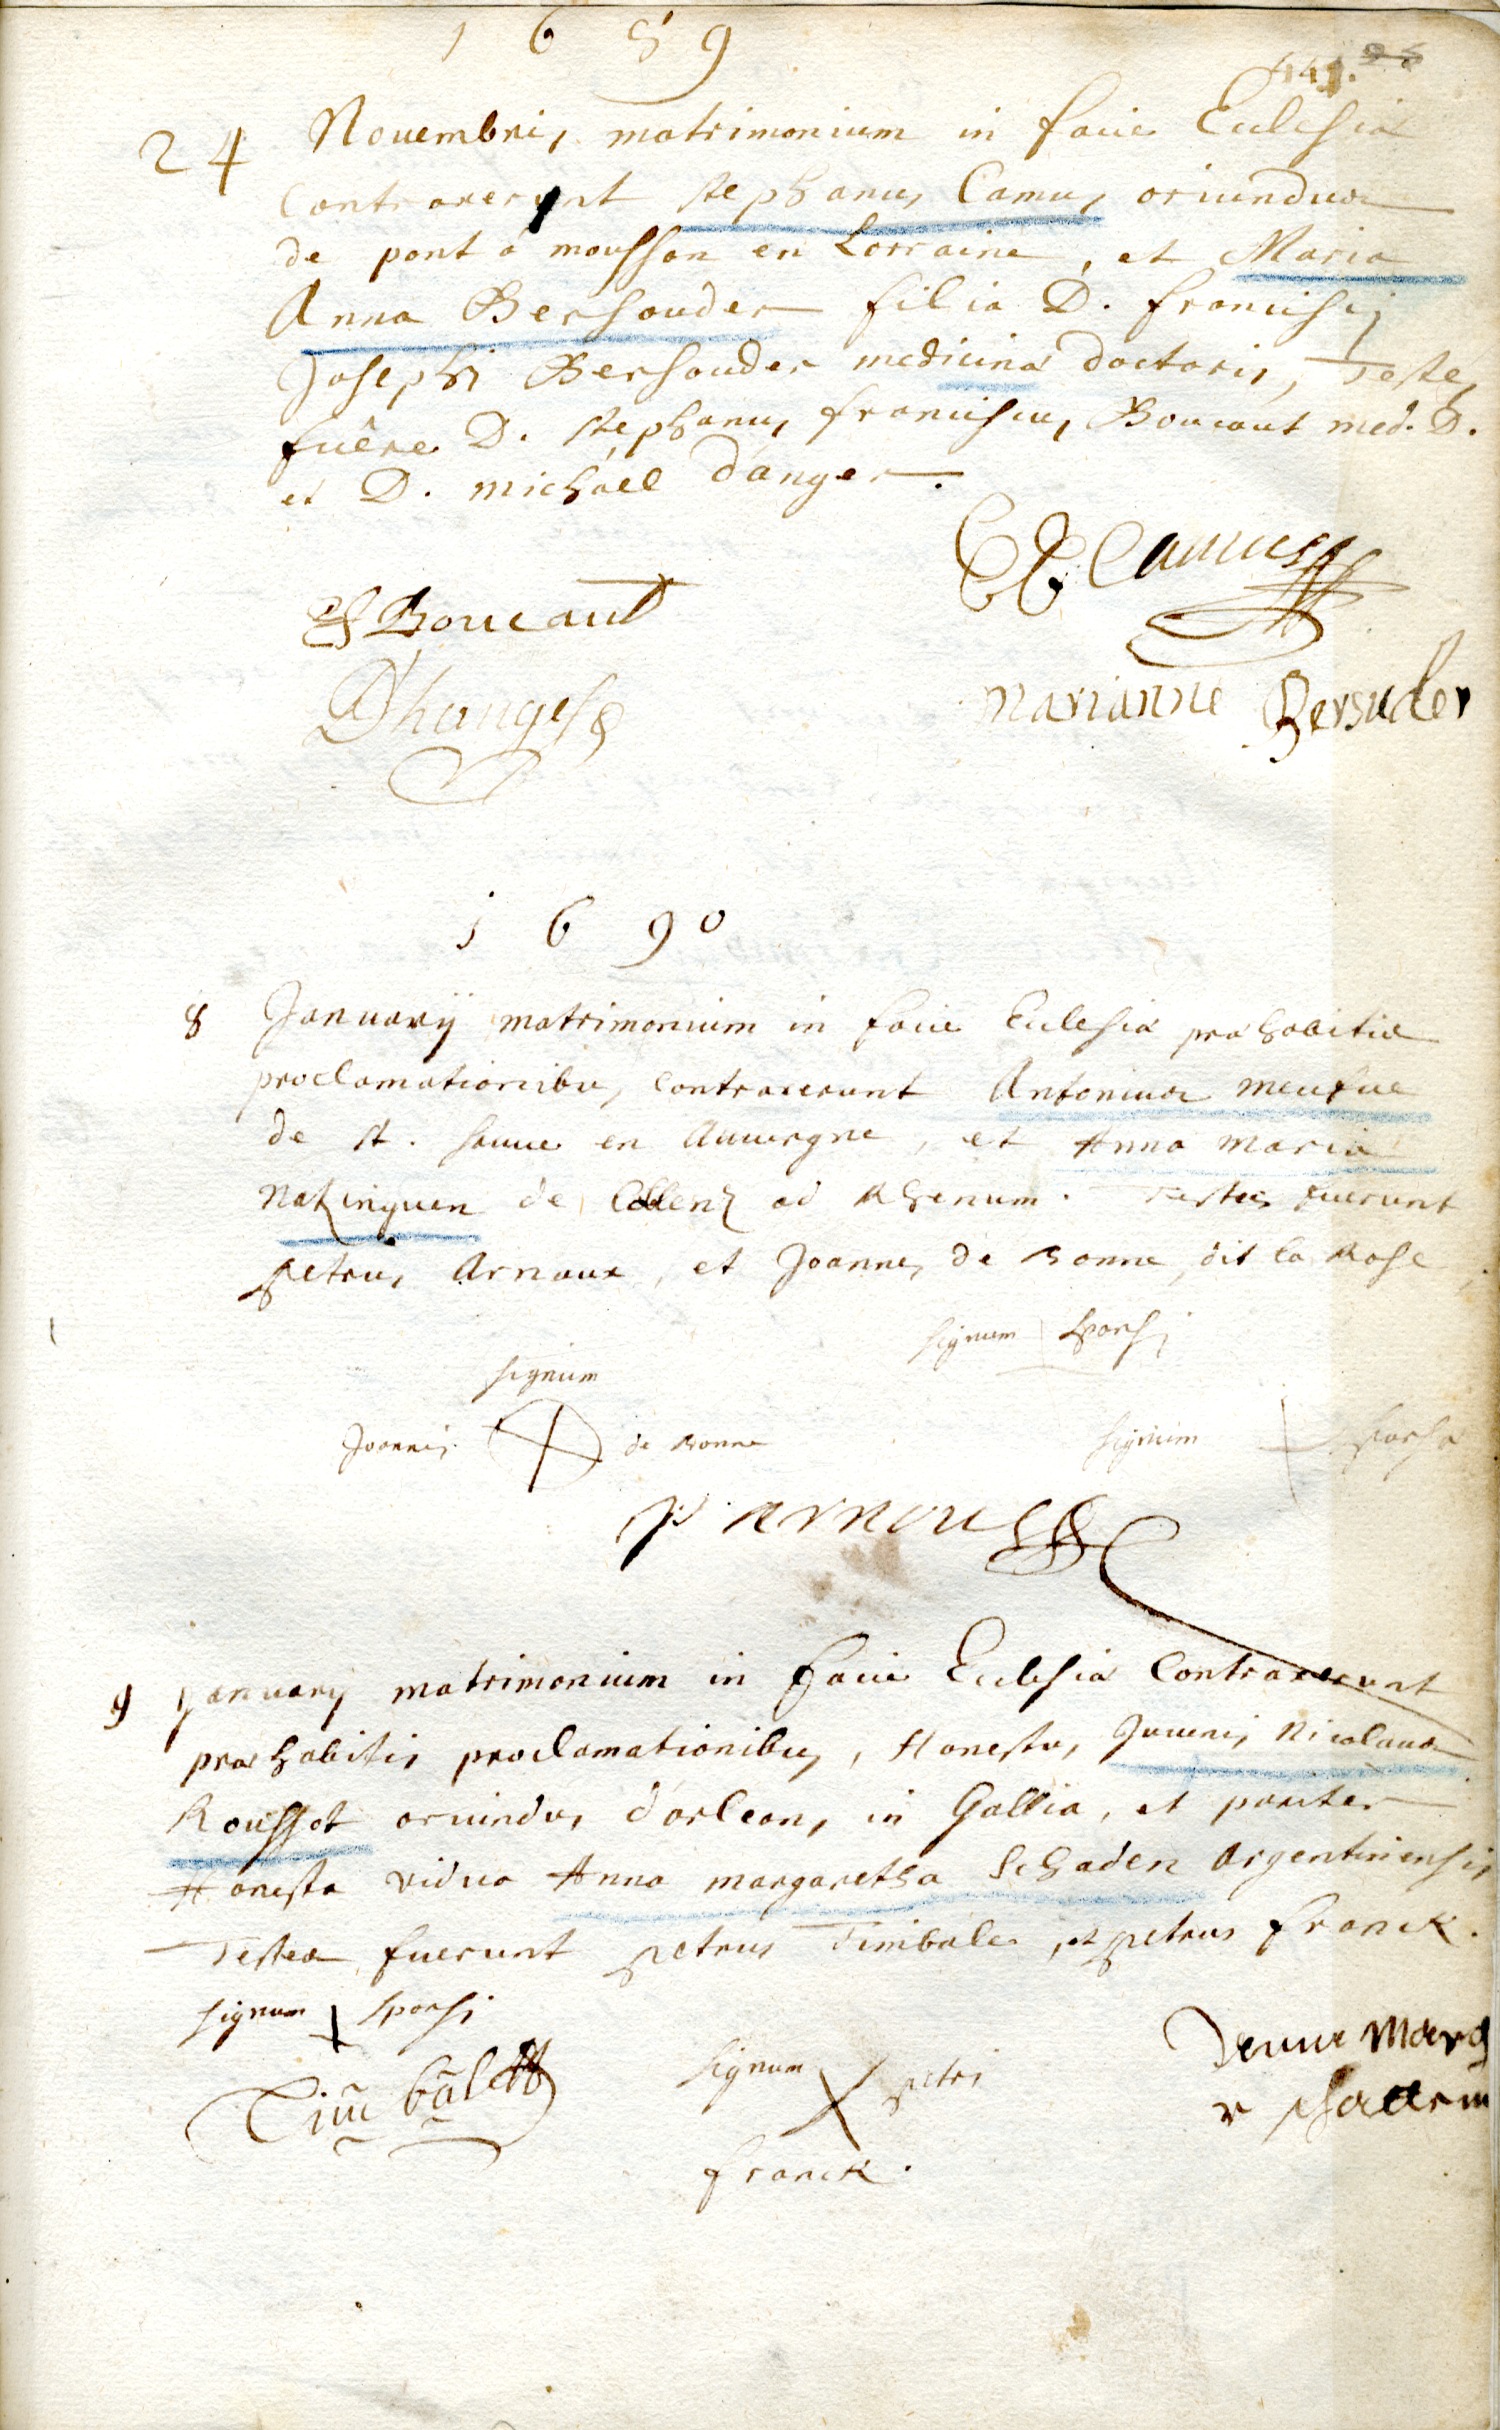 1 6 8 9
24 Novembris matrimonium in facie Ecclesiæ
Contraxerunt stephanus Camus oriundus
de pont à mousson en Lorraine, et Maria
Anna Bersouder filia D. francisci
Josephi Bersouder medicinæ doctoris, Testes
fuêre D. stephanus franciscus Boucaut med. D.
et D. michäel d'anger.
Camus
Boucaut
Marianne Bersuder
1 6 9 0
8 Januarij matrimonium in facie Ecclesiæ præhabitis
proclamationibus contraxerunt Antonius
de st. sauve en Auvergne, et Anna Maria
de ad Rhenum. Testes fuerunt
petrus Arnoux, et Joannes de Bonne, dit la Rose
signum sponsi
signum
Joannis de Bonne
signum sponsæ
P Arnoux
9 Januarij matrimonium in facie Ecclesiæ Contraxerunt
præhabitis proclamationibus, Honestus Juvenis Nicolaus
Roussot oriundus d'orleans in Gallia, et pariter
Honesta vidua Anna margaretha Schaden Argentinensis
Testes fuerunt petrus Timbale, et petrus franck.
signum sponsi
signum petri
franck.